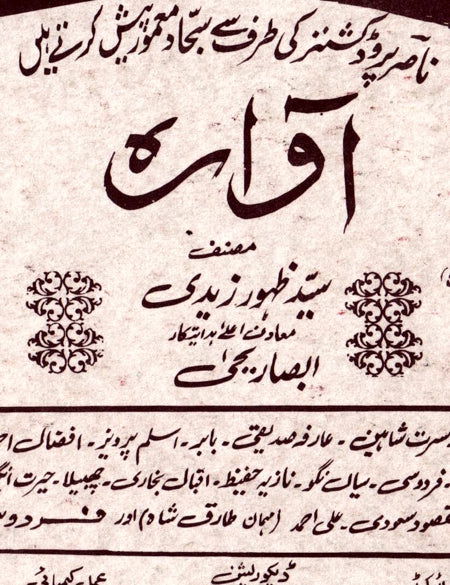 ناصر پروڈکشنز کی طرف سے سجاد معمور پیش کرتے ہیں
آوارہ
مصنف
سید ظہور زیدی
معاون اعلےٰ ہدایتکار
ابصار یحیٰی
مسرت شاہین - عارفہ صدیقی - بابر - اسلم پرویز - افضال
فردوسی - سیاں نگو - نازیہ حفیظ - اقبال بخاری - چھبیلا - حیرت
مقصود سعودی - علی احمد (مہمان طارق شاہ) اور
ڈیکوریشن